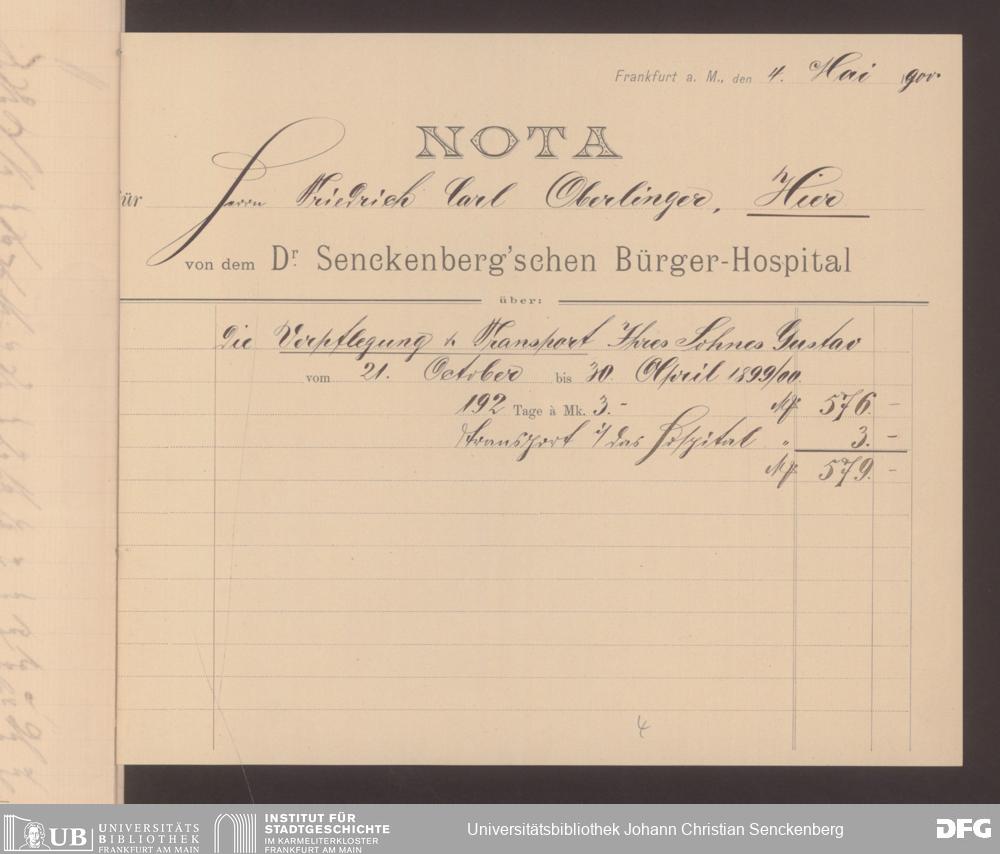 Frankfurt a. M., den 4. Mai 1900.
NOTA
für Herrn Friedrich Carl Oberlinger, Hier
von dem Dr. Senckenberg'schen Bürger-Hospital
über:
die Verpflegung & Transport Ihres Sohnes Gustav
vom 21. October bis 30. April 1899/00.
192 Tage à Mk. 3.- Mk 576. -
Transport i/ das Hospital " 3. -
Mk 579. -
4
UB UNIVERSITÄTS
BIBLIOTHEK
FRANKFURT AM MAIN
INSTITUT FÜR
STADTGESCHICHTE
IM KARMELITERKLOSTER
FRANKFURT AM MAIN
Universitätsbibliothek Johann Christian Senckenberg
DFG